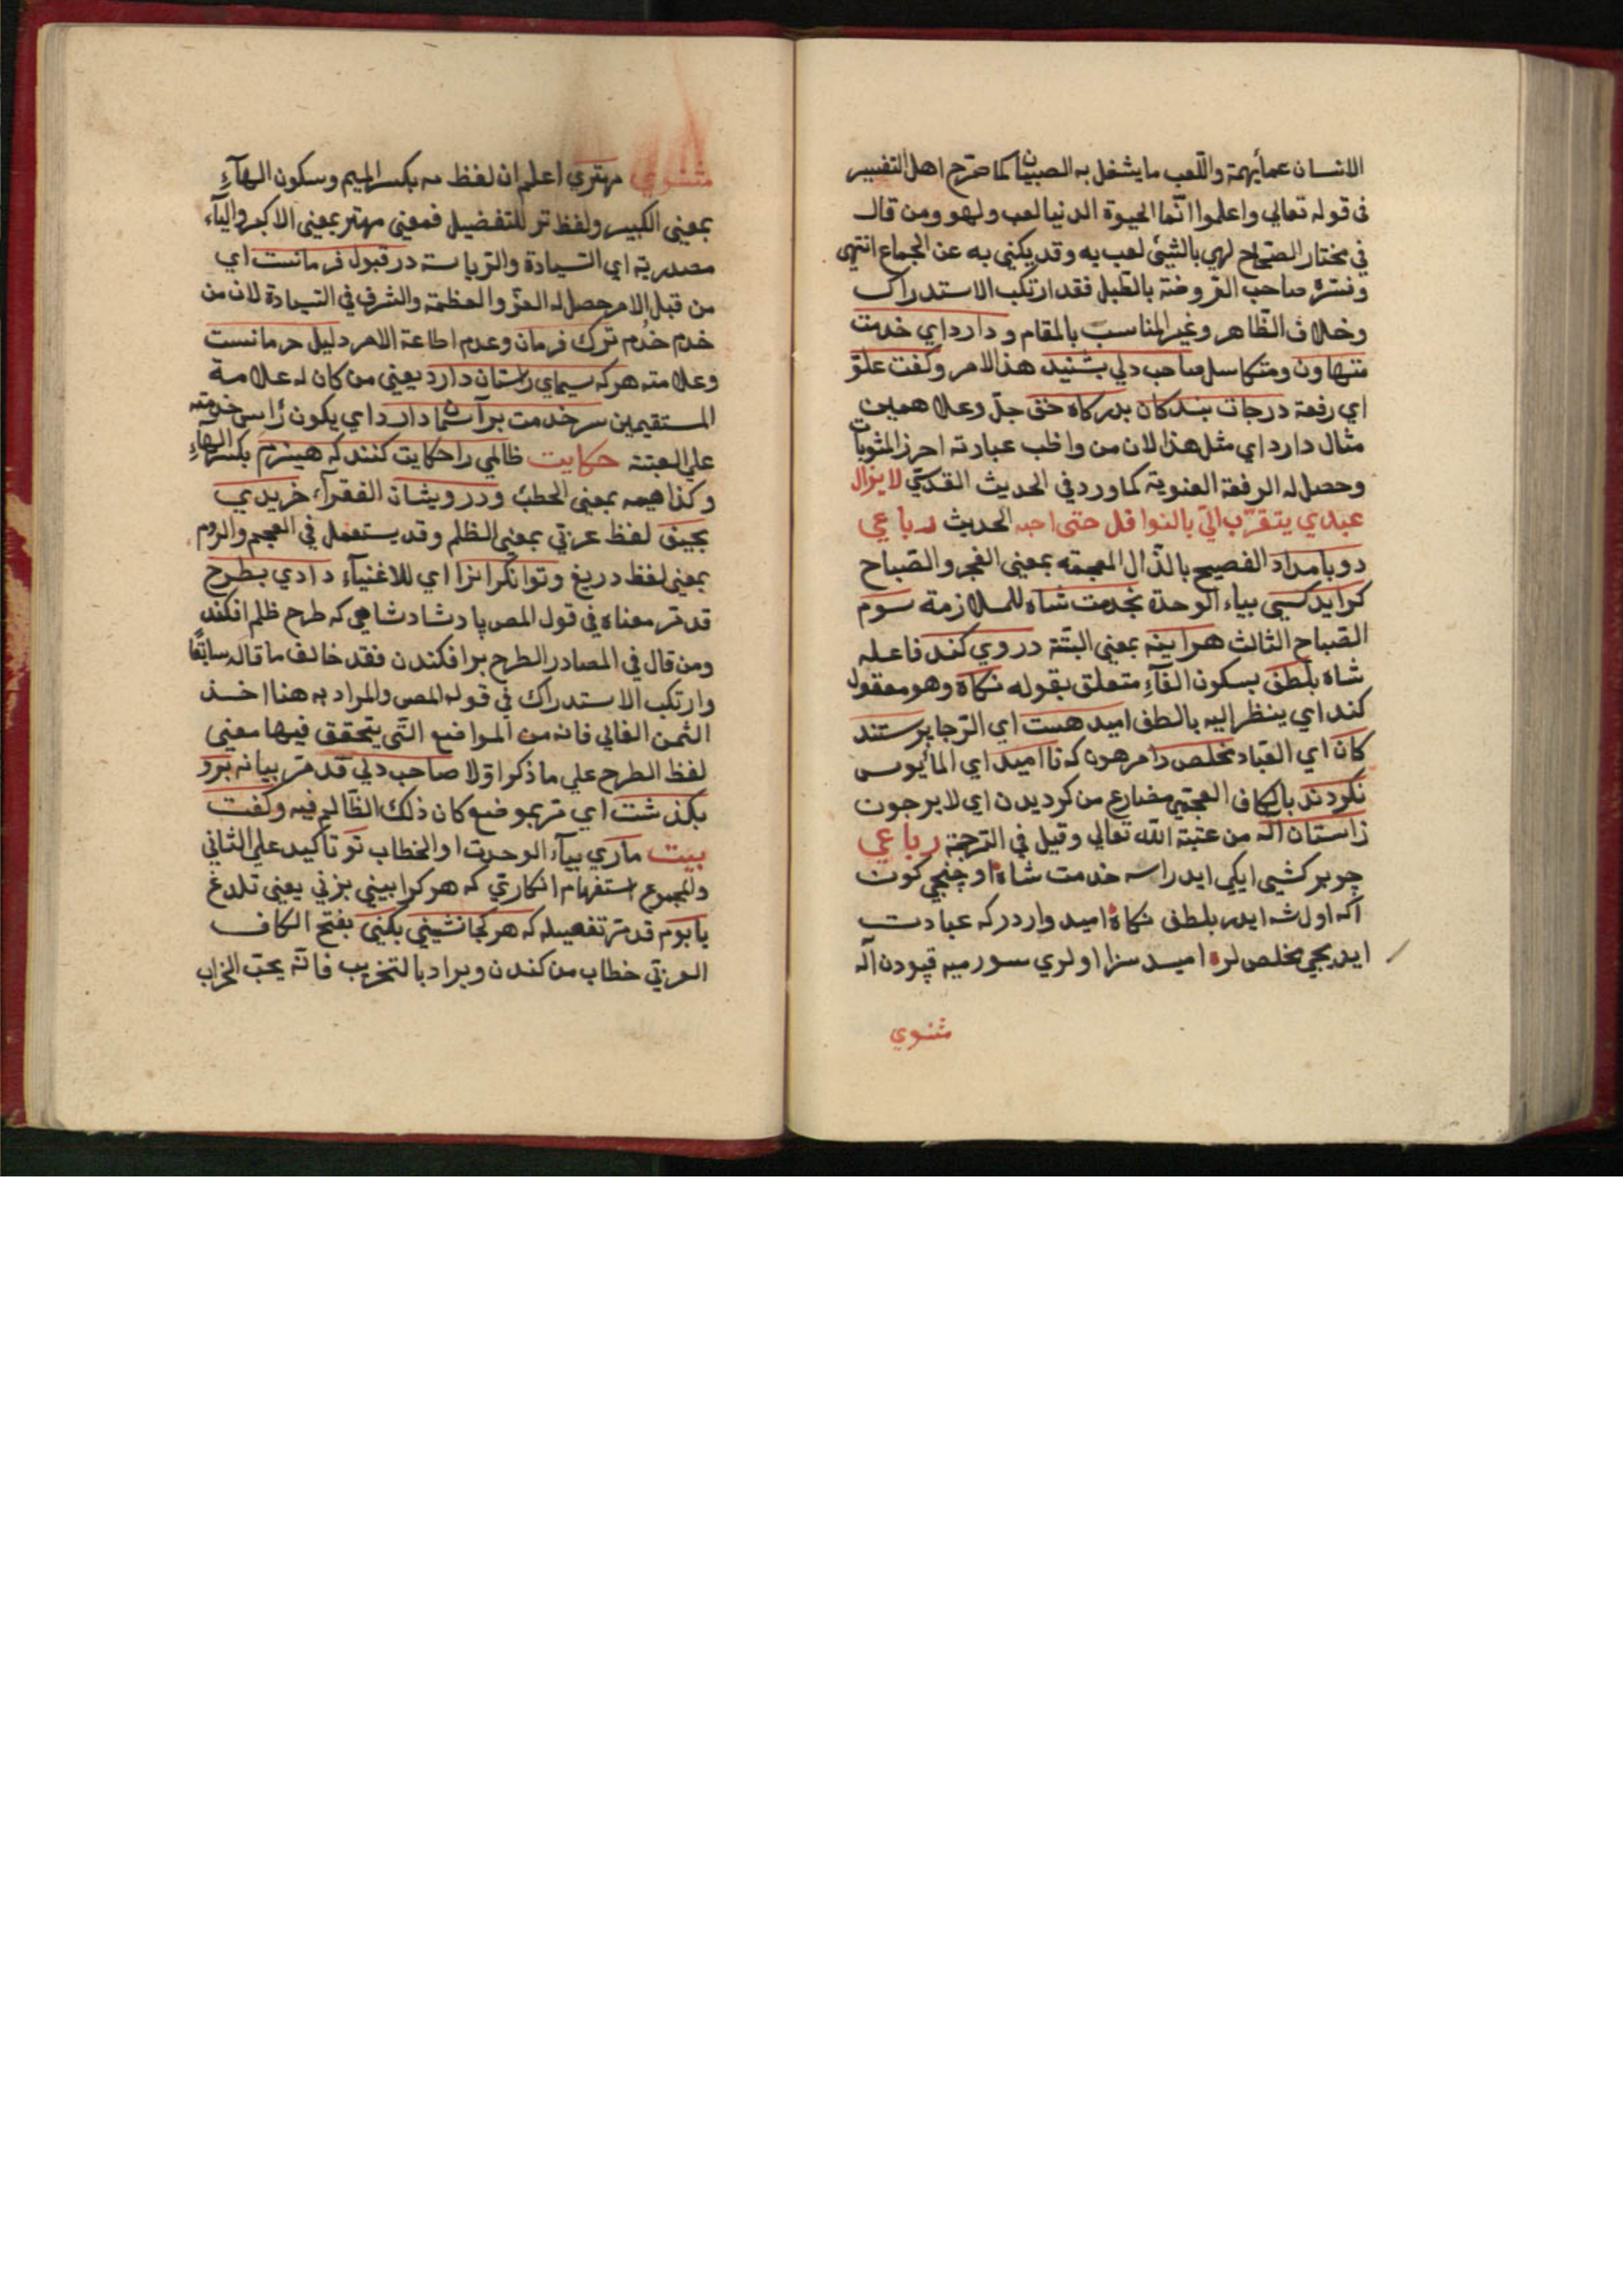 الانسان عما يهمة واللعب ما يشغل به الصبيان كما صرح اهل التفسير
في قوله تعالي واعلموا انّما الحيوة الدنيا لعب ولهو ومن قال
في مختار الصحاح لهي بالشيئ لعب به وقد يكني به عن الجماع انتهي
وفسّره صاحب الفروضة بالطبل فقد ارتكب الاستدراك
وخلاف الظاهر وغير المناسب بالمقام ودارد اي خدمت
متهاون ومتكاسل صاحب دلي بشنيد هذا الامر وكفت علوّ
اي رفعة درجات بندكان بدركاه حق جلّ وعلا همين
مثال دارد اي مثل هذا لان من واظب عبارته احرز المثوبات
وحصل له الرفعة العنوية كما ورد في الحديث القدسي لا يزال
عبدي يتقرّب اليّ بالنوافل حتى احبه الحديث رباعي
دو بامداد الفصيح بالذال المعجمة بمعني الفجر والصباح
كر ايد كسي بياء الوحدة بخدمت شاه للملازمة سوم
الصباح الثالث هر اينه بمعني البتّة در وي كند فاعله
شاه بلطف بسكون الفآء متعلق بقوله نكاه وهو مفعول
كند اي ينظر اليه بالطف اميد هست اي الرجا پرستند
كان اي العباد مخلص را مرهون كه نا اميد اي المأيوس
نكردند بالكاف العجمي مضارع من كرديدن اي لا يرجون
زاستان اله من عتبة الله تعالي وقيل في الترجمة رباعي
چو بر كشي ايكي ايدراسه خدمت شاه اوچنجي كون
اكه اول شه ايدر بلطف نكاه اميد واردر كه عبادت
ايديجي مخلص لره اميد سزا اولري سورميه قپودن اله
مثنوي
مثنوي مهتري اعلم ان لفظ مه بكسر الميم وسكون الهآء
بمعني الكبير ولفظ تر للتفضيل فمعني مهتر بمعني الاكبر والياء
مصدرية اي السيادة والرياسة در قبول فرمانست اي
من قبل الامر حصل له العزّ والعظمة والشرف في السيادة لان من
خدم خُدم ترك فرمان وعدم اطاعة الامر دليل حرمانست
وعلامته هر كه سيماي راستان دارد يعني من كان له علامة
المستقيمين سر خدمت بر آستان دارد اي يكون رأس خدمته
علي العتبة حكايت ظالمي را حكايت كنند كه هيزم بكسر الهآء
وكذا هيمه بمعني الحطب ودرويشان الفقرآء خريدي
بحيف لفظ عربي بمعني الظلم وقد يستعمل في العجم والروم
بمعني لفظ دريغ وتوانكرانرا اي للاغنيآء دادي بطرح
قد مر معناه في قول المص پادشا دشاهي كه طرح ظلم افكند
ومن قال في المصادر الطرح بر افكندن فقد خالف ما قاله سابقًا
وارتكب الاستدراك في قوله المص والمراد به هنا اخذ
الثمن الغالي فانه من المواضع التّي يتحقق فيها معني
لفظ الطرح علي ما ذكر اوّلا صاحب دلي قد مرّ بيانه برو
بكذشت اي مرّ بموضع كان ذلك الظالم فيه وكفت
بيت ماري بيآء الوحدت او الخطاب تو تاكيد علي الثاني
والمجموع استفهام انكاري كه هر كرا بيني بزني يعني تلدغ
يا بوم قد مرّ تفصيله كه هر كجا نشيني بكني بفتح الكاف
العربي خطاب من كندن ويراد بالتخريب فانّه يحبّ الخراب